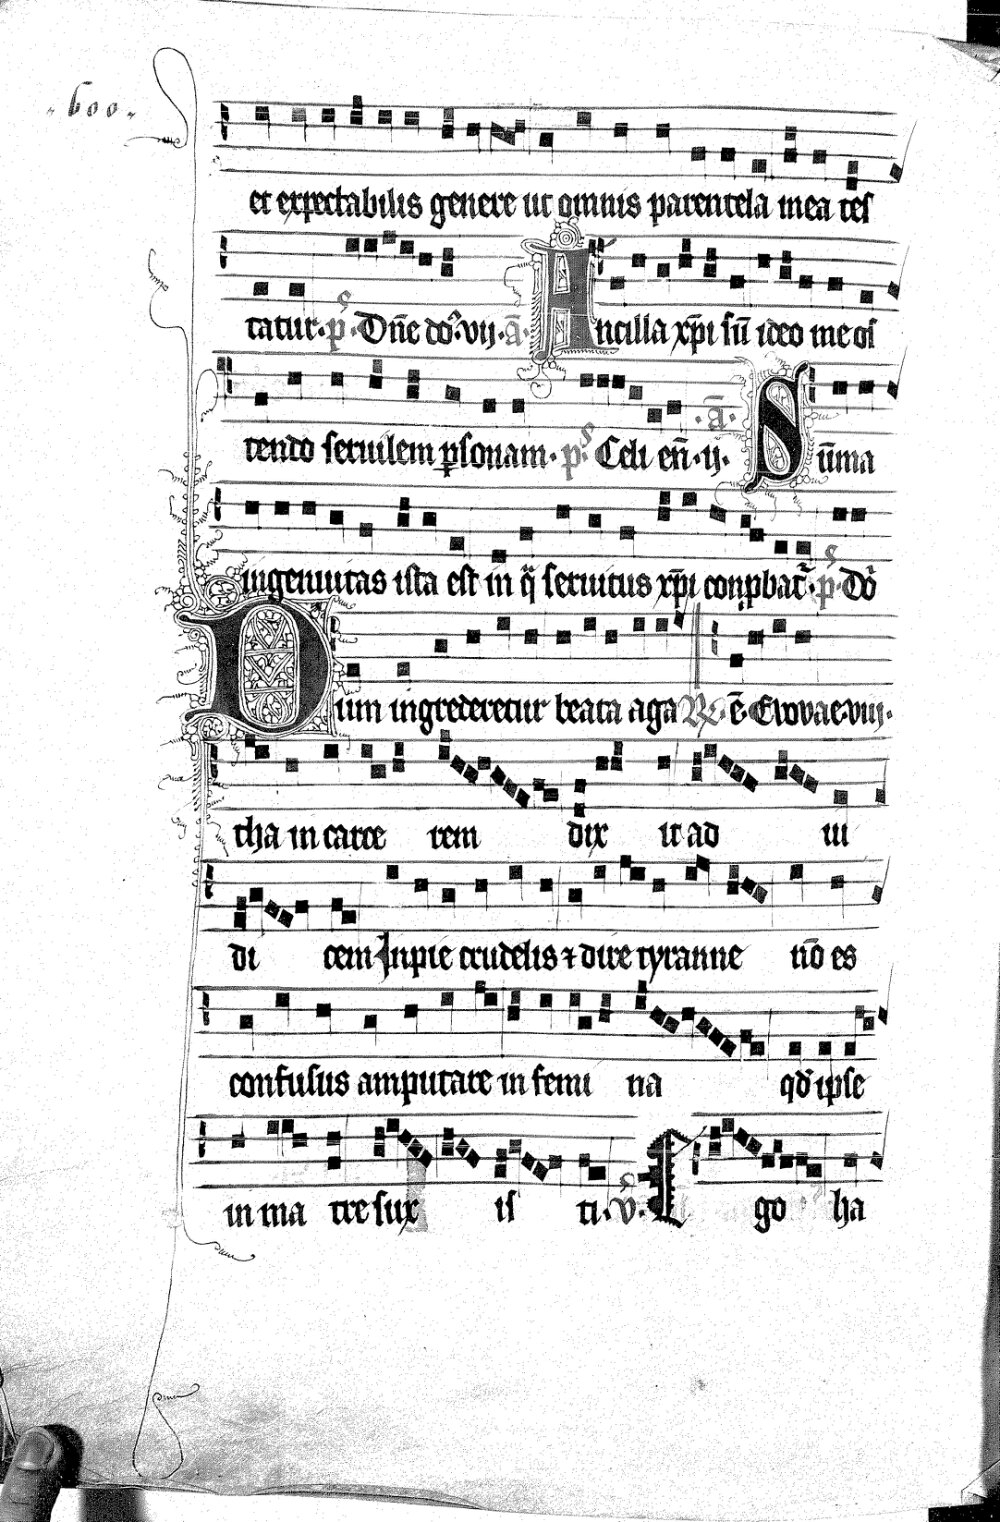 600
et expectabilis genere ut omnis parentela mea tes
tatur. p̄s. Dn̄e do. vij. ā. Ancilla xp̄i sū ideo me os
tendo seruilem ꝑsonam. ps. Celi en̄. ij. ā. Sūma
ingenuitas ista est in q̄ seruitus xp̄i conp̱bat᷑. ps. Dō
Dum ingrederetur beata aga ē. Evovae. viij.
tha in carce rem dix it ad iu
di cem Inpie crudelis ⁊ dire tyranne nō es
confusus amputare in femi na qd̕ ipse
in ma tre sux is ti. v̄s. Ego ha